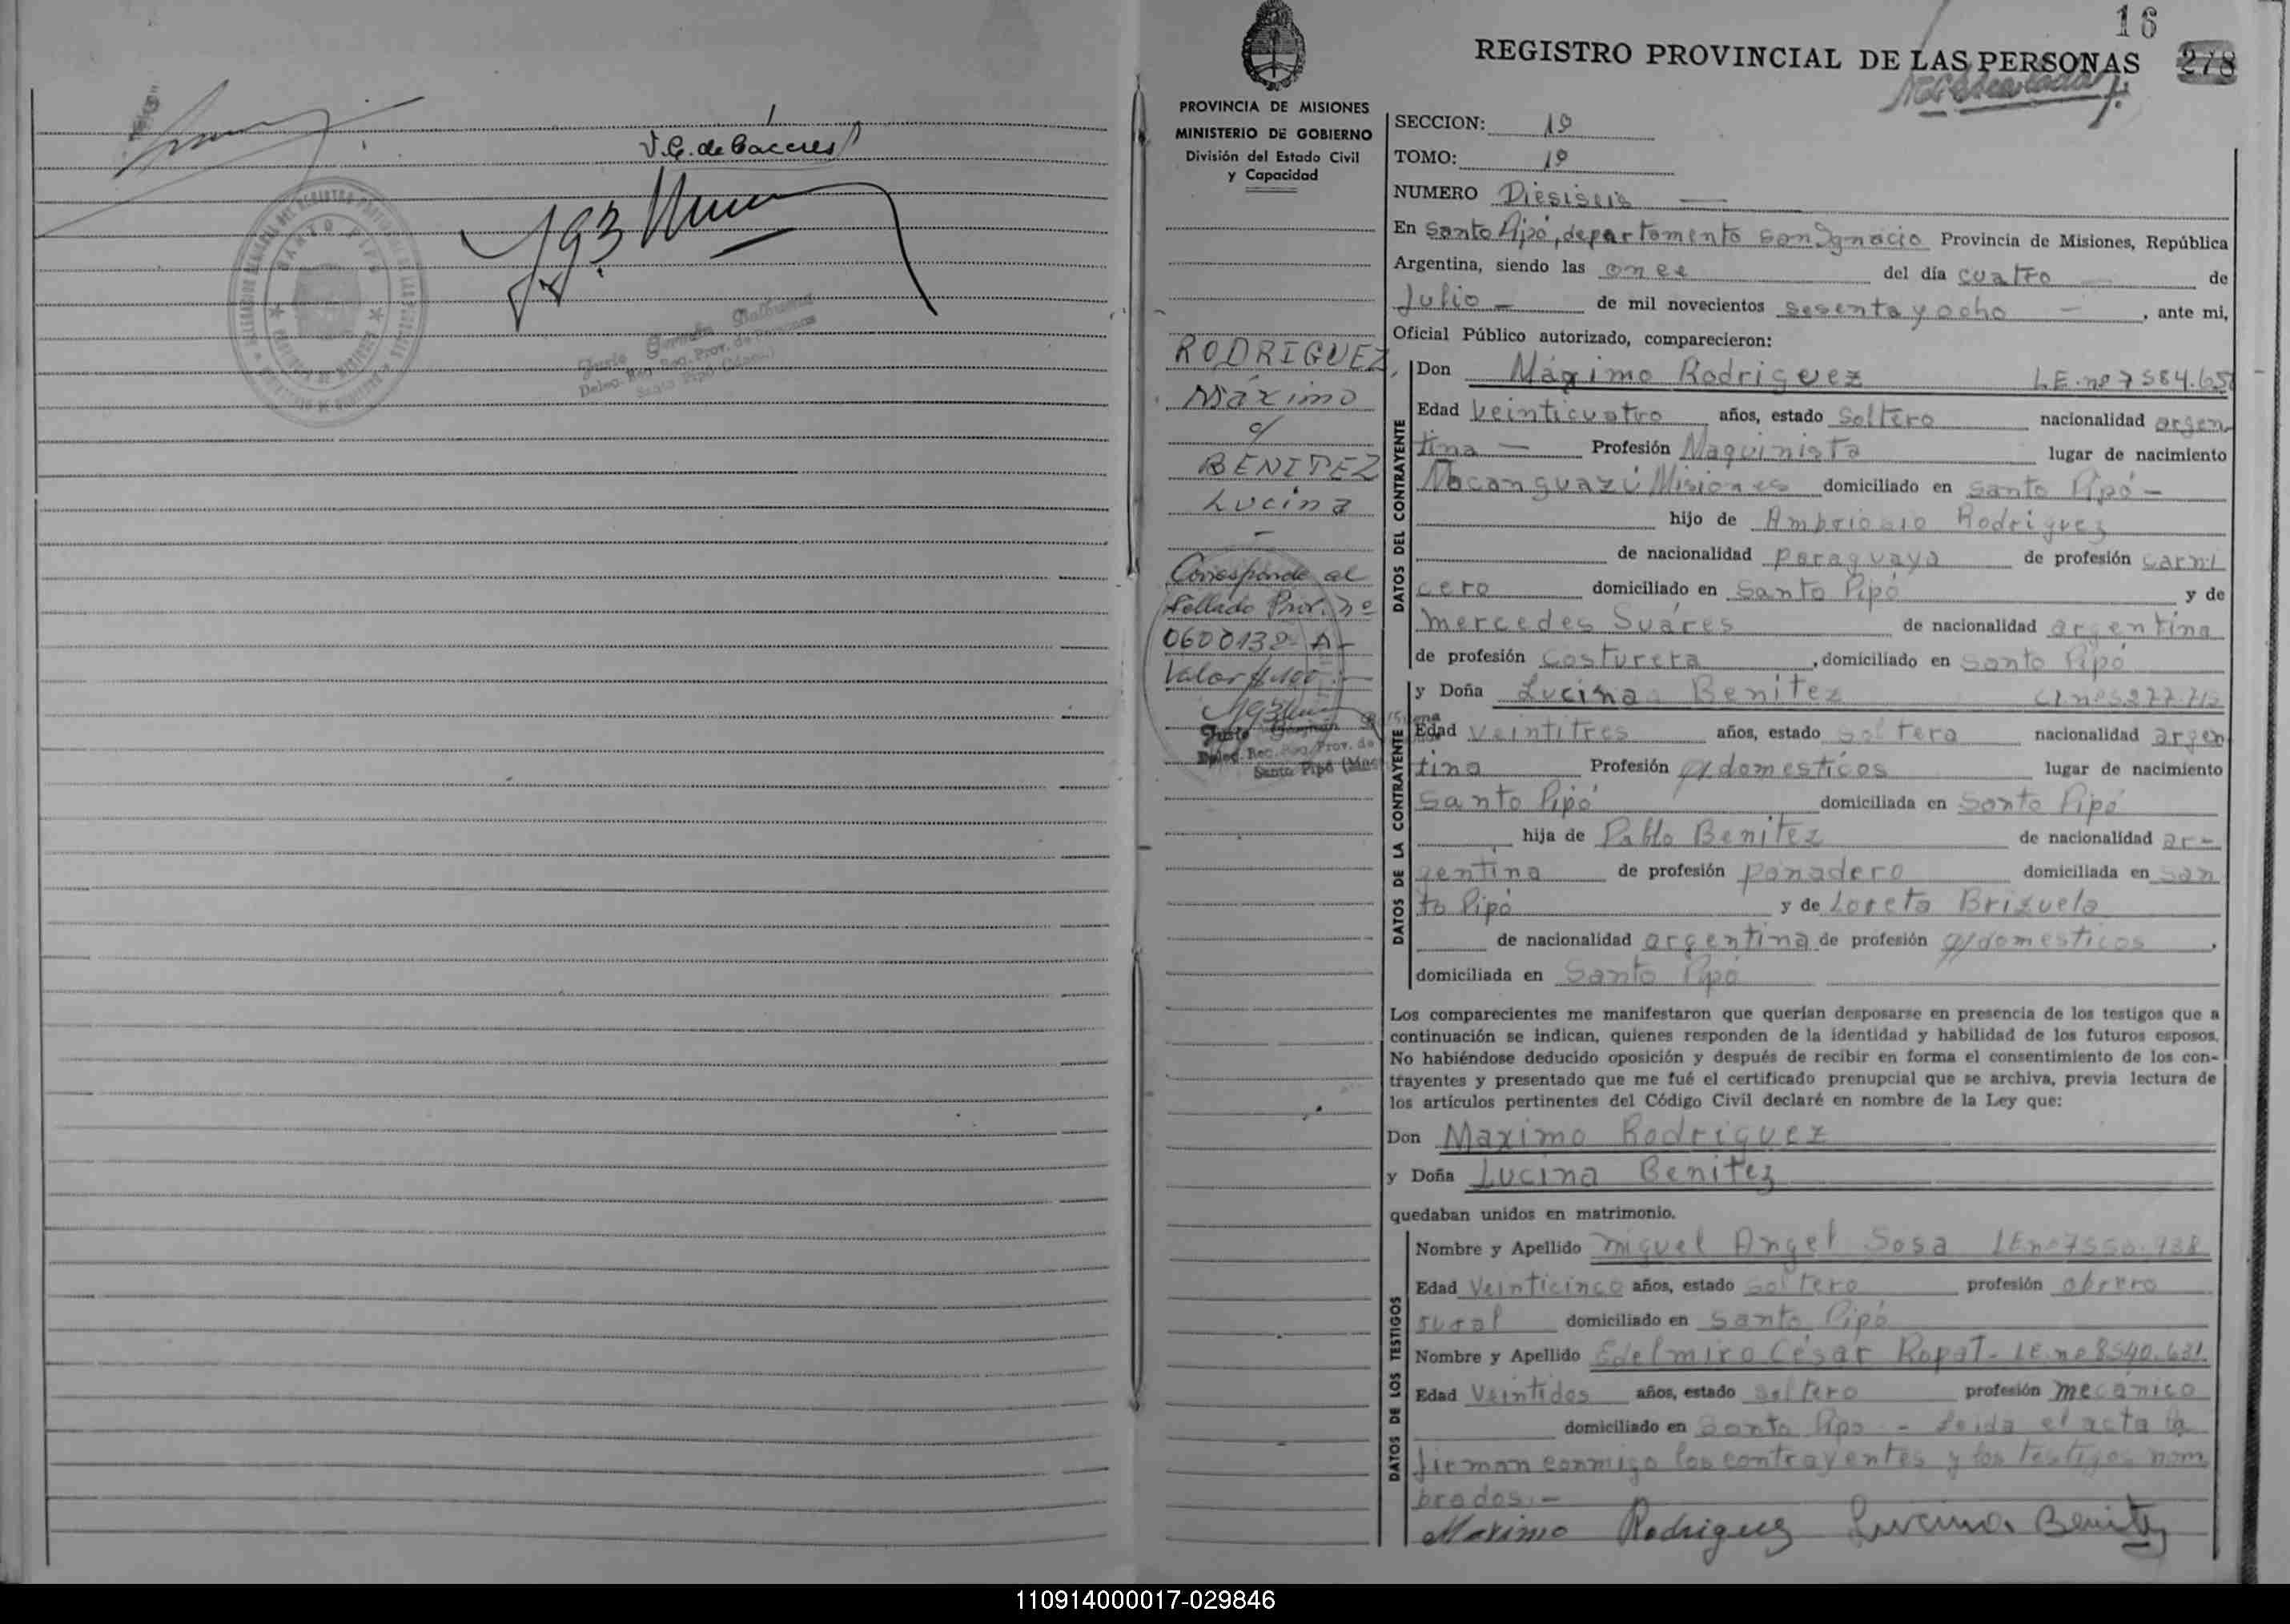 V. G. de Cáceres
SANTO PIPO
Justo Germán Balbuena
Deleg. Reg. Prov. de Personas
Santo Pipó (Mnes.)
16
REGISTRO PROVINCIAL DE LAS PERSONAS
278
PROVINCIA DE MISIONES
MINISTERIO DE GOBIERNO
División del Estado Civil
y Capacidad
RODRIGUEZ,
Máximo
c/
BENITEZ
Lucina
-
Corresponde al
Sellado Prov. nº
Valor $ 100.-
Justo Germán Balbuena
Deleg. Reg. Prov. de
Santo Pipó (Mnes
SECCION: 1º
TOMO: 1º
NUMERO Diesiseis —
En Santo Pipó, departamento San Ignacio Provincia de Misiones, República
Argentina, siendo las once del día cuatro — de
Julio — de mil novecientos sesenta y ocho —, ante mi,
Oficial Público autorizado, comparecieron:
DATOS DEL CONTRAYENTE
Don Máximo Rodriguez L.E. nº 7584.65
Edad Veinticuatro años, estado Soltero nacionalidad argen
tina — Profesión Maquinista lugar de nacimiento
Ñacanguazú Misiones domiciliado en Santo Pipó —
hijo de Ambriosio Rodriguez
de nacionalidad paraguaya de profesión carni
cero domiciliado en Santo Pipó y de
Mercedes Suáres de nacionalidad argentina
de profesión Costurera, domiciliado en Santo Pipó
DATOS DE LA CONTRAYENTE
y Doña Lucina Benitez
Edad Veintitres años, estado Soltera nacionalidad argen
tina Profesión q/domesticos lugar de nacimiento
Santo Pipó domiciliada en Santo Pipó
hija de Pablo Benitez de nacionalidad ar-
gentina de profesión panadero domiciliada en San
to Pipó y de Loreta Brizuela
de nacionalidad argentina de profesión q/domesticos,
domiciliada en Santo Pipó
Los comparecientes me manifestaron que querían desposarse en presencia de los testigos que a
continuación se indican, quienes responden de la identidad y habilidad de los futuros esposos.
No habiéndose deducido oposición y después de recibir en forma el consentimiento de los con-
trayentes y presentado que me fué el certificado prenupcial que se archiva, previa lectura de
los artículos pertinentes del Código Civil declaré en nombre de la Ley que:
Don Maximo Rodriguez
y Doña Lucina Benitez
quedaban unidos en matrimonio.
DATOS DE LOS TESTIGOS
Nombre y Apellido Miguel Angel Sosa LE nº 7550.738
Edad Veinticinco años, estado soltero profesión obrero
rural domiciliado en Santo Pipó
Nombre y Apellido Edelmiro César Ropat - LE. nº 8540.631
Edad Veintidos años, estado soltero profesión mecánico
domiciliado en Santo Pipó - Leida el acta la
firman conmigo los contrayentes y los testigos nom
brados.-
Maximo Rodriguez Lucina Benitez
110914000017-029846